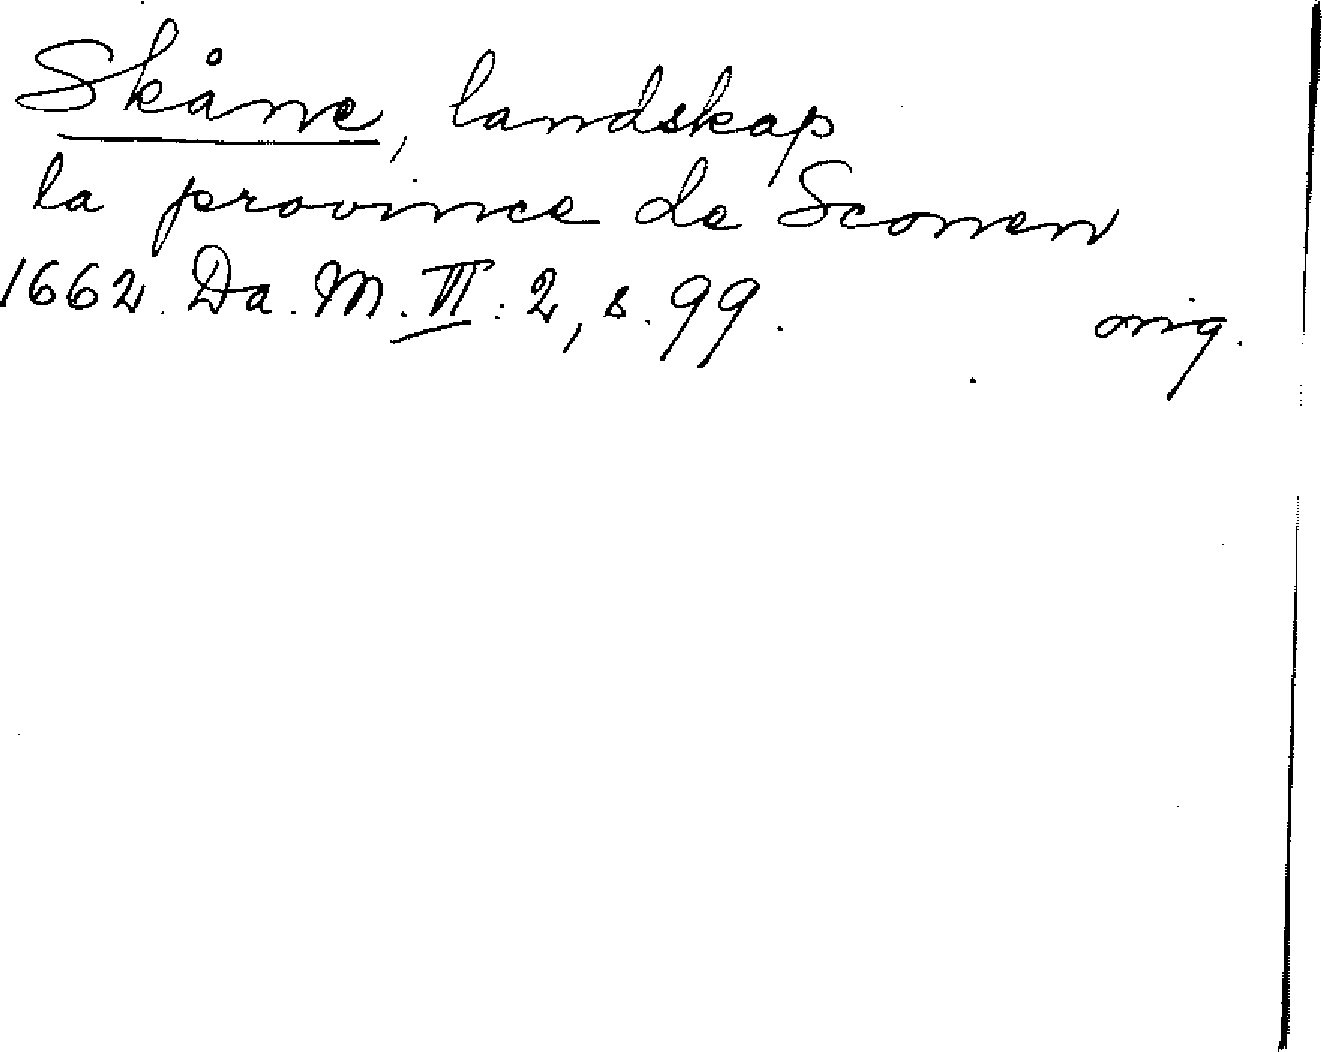 Skåne, landskap
la province de Sconen
1662. Da. M. VI: 2, s. 99. orig.